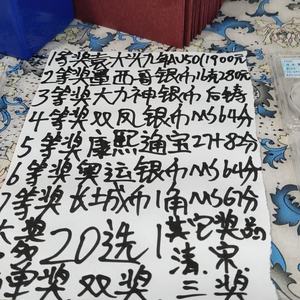 1等奖袁大头九年AU50(1900元
2等奖墨西哥银币16枚280元
3等奖大力神银币后铸
4等奖双凤银币MS64分
5等奖康熙通宝27+82分
6等奖奥运银币MS64分
7等奖长城币1角MS67分
大奖20选1其它奖品
清宋
单奖双奖三奖